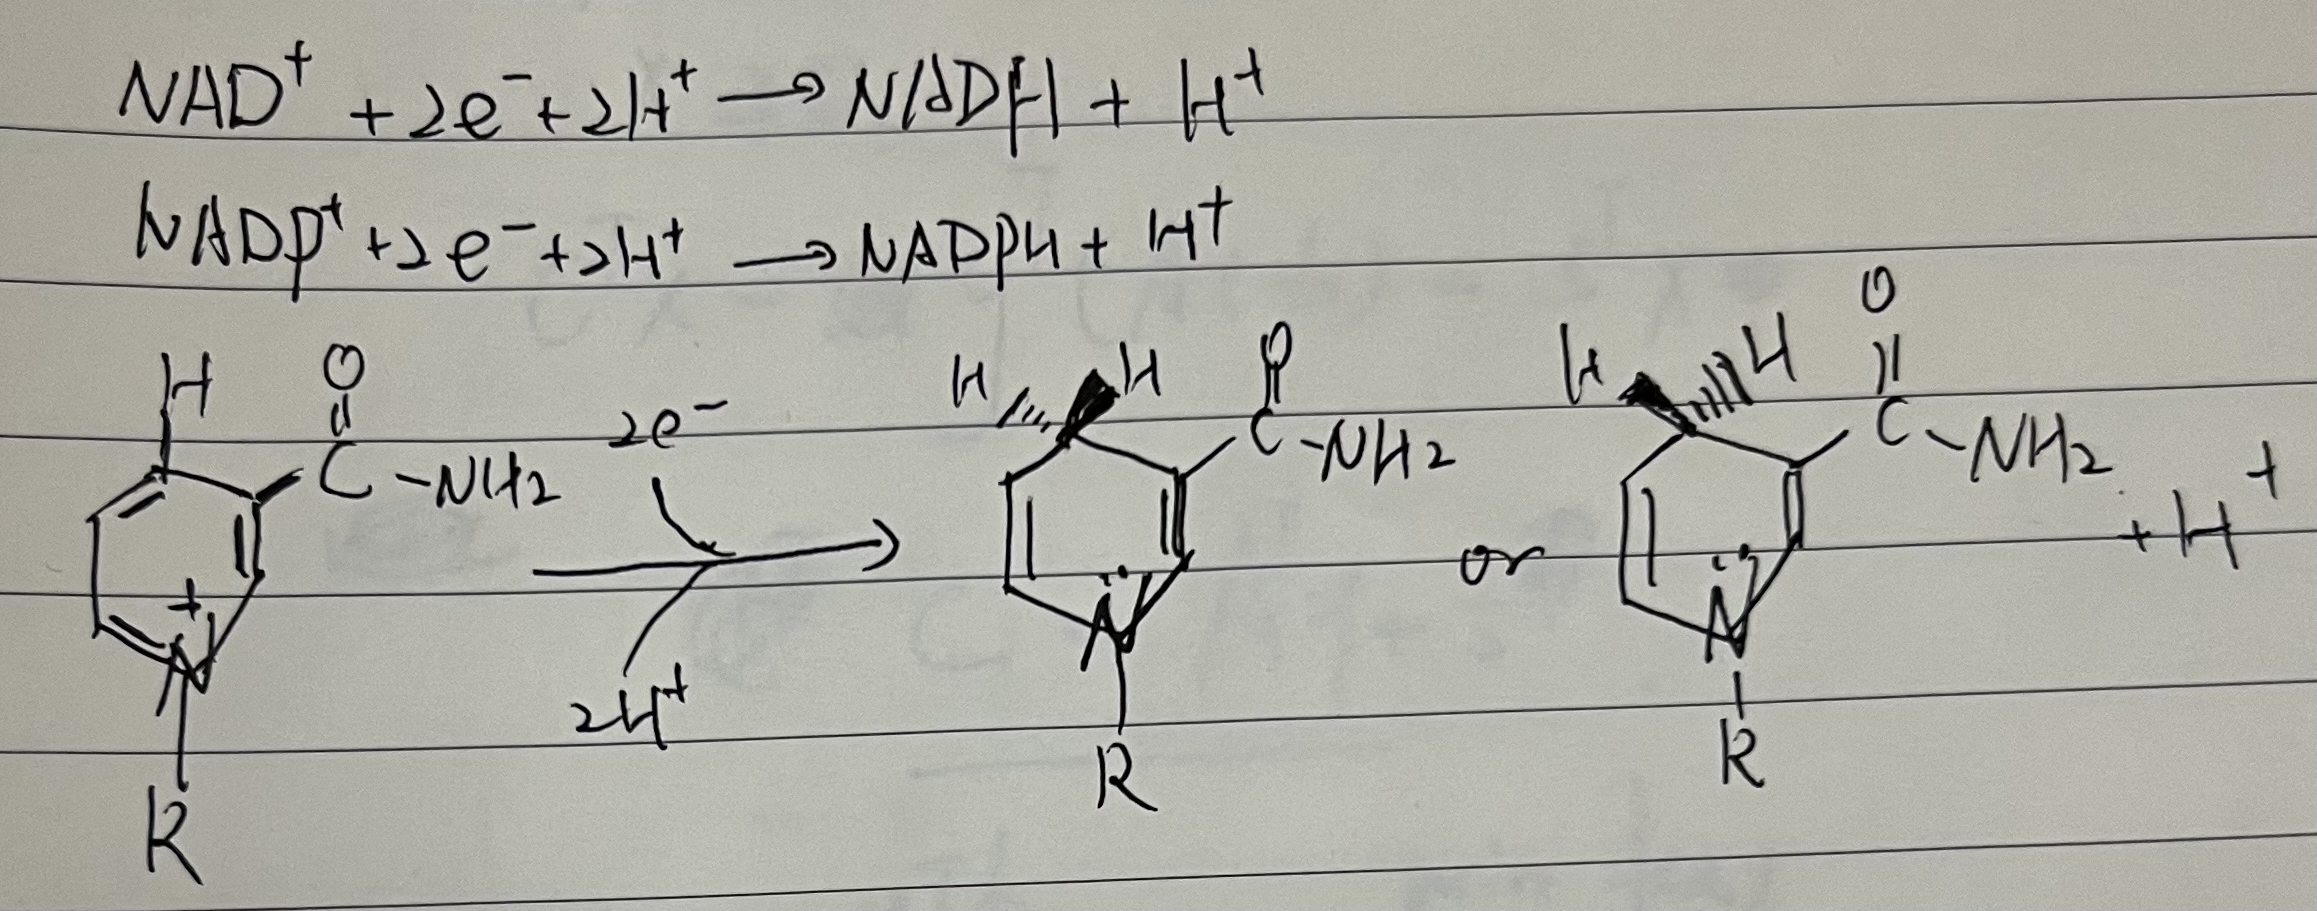 NAD⁺ + 2e⁻ + 2H⁺ → NADH + H⁺
NADP⁺ + 2e⁻ + 2H⁺ → NADPH + H⁺
H O C -NH2 N⁺ R
2e⁻
2H⁺
H H O C -NH2 N R
or
H H O C -NH2 N R
+ H⁺